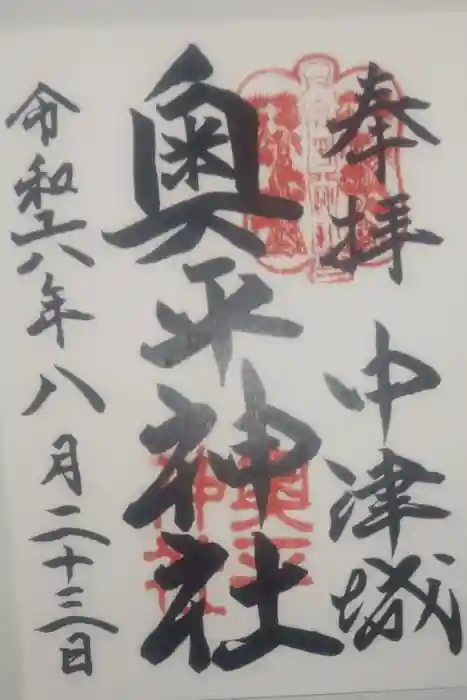 奉拝 中津城
奥平神社
令和六年八月二十三日
奥平
神社